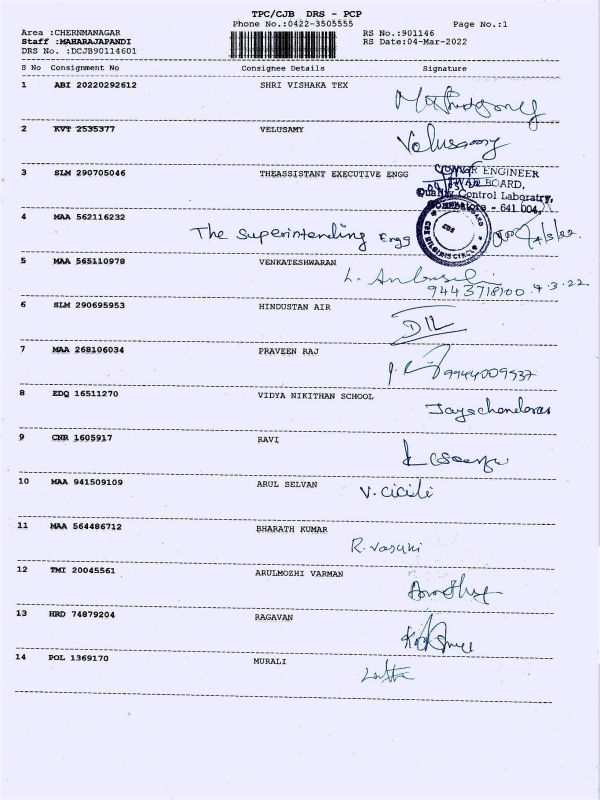 TPC/CJB DRS - PCP
Phone No.:0422-3505555 Page No.:1
Area :CHERNMANAGAR RS No.:901146
Staff :MAHARAJAPANDI RS Date:04-Mar-2022
DRS No. :DCJB90114601
S No Consignment No Consignee Details Signature
1 ABI 20220292612 SHRI VISHAKA TEX
2 KVT 2535377 VELUSAMY Velusamy
3 SLM 290705046 THEASSISTANT EXECUTIVE ENGG
ENGINEER
BOARD,
Quality Control Laboratry,
Coimbatore - 641 004.
4 MAA 562116232
The Superintending Engg 4/3/22
5 MAA 565110978 VENKATESHWARAN
9443718100 4.3.22
6 SLM 290695953 HINDUSTAN AIR
7 MAA 268106034 PRAVEEN RAJ
9944009937
8 EDQ 16511270 VIDYA NIKITHAN SCHOOL
Jayachandran
9 CNR 1605917 RAVI
10 MAA 941509109 ARUL SELVAN V. Cicili
11 MAA 564486712 BHARATH KUMAR
R. Vasuki
12 TMI 20045561 ARULMOZHI VARMAN
13 HRD 74879204 RAGAVAN
14 POL 1369170 MURALI